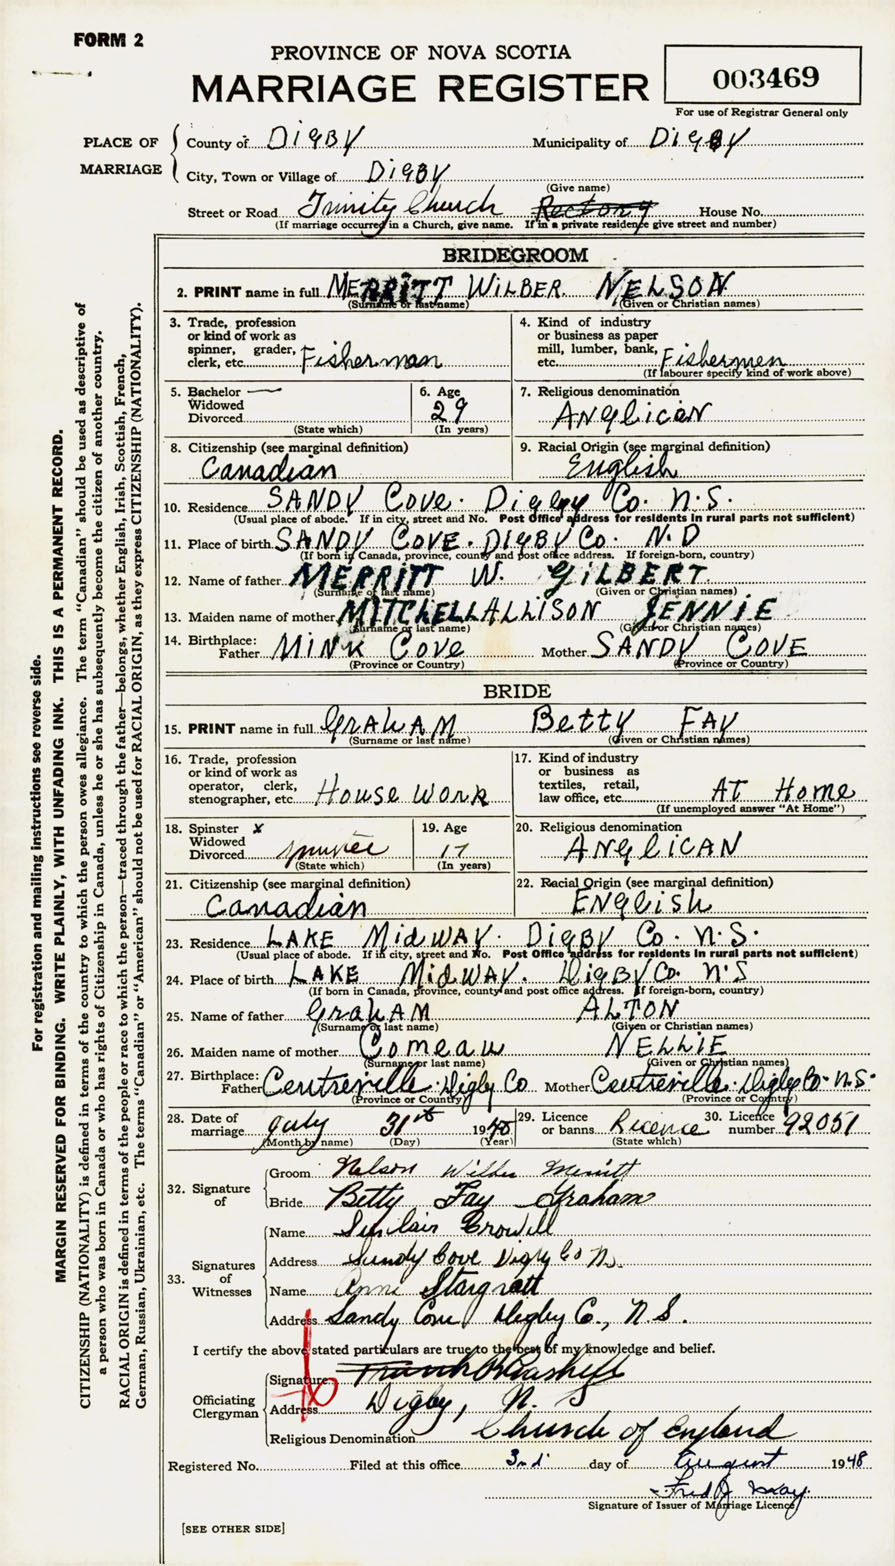 FORM 2
PROVINCE OF NOVA SCOTIA
MARRIAGE REGISTER
003469
For use of Registrar General only
PLACE OF MARRIAGE
County of DIGBY Municipality of DIGBY
City, Town or Village of DIGBY
(Give name)
Street or Road Trinity Church Rectory House No.
(If marriage occurred in a Church, give name. If in a private residence give street and number)
BRIDEGROOM
2. PRINT name in full MERRITT WILBER NELSON
(Surname or last name) (Given or Christian names)
3. Trade, profession or kind of work as spinner, grader, clerk, etc. Fisherman
4. Kind of industry or business as paper mill, lumber, bank, etc. Fishermen
(If labourer specify kind of work above)
5. Bachelor —
Widowed
Divorced
(State which)
6. Age 29
(In years)
7. Religious denomination
ANGLICAN
8. Citizenship (see marginal definition)
Canadian
9. Racial Origin (see marginal definition)
English
10. Residence SANDY COVE. Digby Co. N.S.
(Usual place of abode. If in city, street and No. Post Office address for residents in rural parts not sufficient)
11. Place of birth SANDY COVE. DIGBY Co. N.D
(If born in Canada, province, county and post office address. If foreign-born, country)
12. Name of father MERRITT W. GILBERT
(Surname or last name) (Given or Christian names)
13. Maiden name of mother MITCHELL ALLISON JENNIE
(Surname or last name) (Given or Christian names)
14. Birthplace: Father MINK COVE Mother SANDY COVE
(Province or Country) (Province or Country)
BRIDE
15. PRINT name in full GRAHAM Betty FAY
(Surname or last name) (Given or Christian names)
16. Trade, profession or kind of work as operator, clerk, stenographer, etc. House Work
17. Kind of industry or business as textiles, retail, law office, etc. AT Home
(If unemployed answer "At Home")
18. Spinster x
Widowed
Divorced
(State which)
19. Age 17
(In years)
20. Religious denomination
ANGLICAN
21. Citizenship (see marginal definition)
Canadian
22. Racial Origin (see marginal definition)
ENGLISH
23. Residence LAKE MIDWAY. DIGBY Co. N.S.
(Usual place of abode. If in city, street and No. Post Office address for residents in rural parts not sufficient)
24. Place of birth LAKE MIDWAY. DIGBY Co. N.S
(If born in Canada, province, county and post office address. If foreign-born, country)
25. Name of father GRAHAM ALTON
(Surname or last name) (Given or Christian names)
26. Maiden name of mother Comeau NELLIE
(Surname or last name) (Given or Christian names)
27. Birthplace: Father Centreville Digby Co Mother Centreville Digby Co. N.S.
(Province or Country) (Province or Country)
28. Date of marriage July 31st 1948
(Month by name) (Day) (Year)
29. Licence or banns Licence
(State which)
30. Licence number 92051
32. Signature of
Groom Nelson Wilber Merritt
Bride Betty Fay Graham
33. Signatures of Witnesses
Name Sinclair Crowell
Address Sandy Cove Digby Co N.
Name Anni
Address Sandy Cove Digby Co., N.S.
I certify the above stated particulars are true to the best of my knowledge and belief.
Officiating Clergyman
Signature
Address Digby, N. S
Religious Denomination Church of England
Registered No. Filed at this office 3rd day of August 1948
Fred J May
Signature of Issuer of Marriage Licence
[SEE OTHER SIDE]
For registration and mailing instructions see reverse side.
MARGIN RESERVED FOR BINDING. WRITE PLAINLY, WITH UNFADING INK. THIS IS A PERMANENT RECORD.
CITIZENSHIP (NATIONALITY) is defined in terms of the country to which the person owes allegiance. The term "Canadian" should be used as descriptive of
a person who was born in Canada or who has rights of Citizenship in Canada, unless he or she has subsequently become the citizen of another country.
RACIAL ORIGIN is defined in terms of the people or race to which the person—traced through the father—belongs, whether English, Irish, Scottish, French,
German, Russian, Ukrainian, etc. The terms "Canadian" or "American" should not be used for RACIAL ORIGIN, as they express CITIZENSHIP (NATIONALITY).